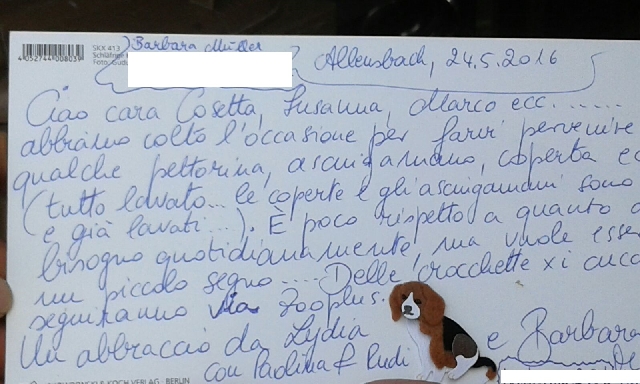 4 052744 008039
SKX 413
Schläfrige
Foto: Gudu
Barbara Müller
Allensbach, 24.5.2016
Ciao cara Cosetta, Susanna, Marco ecc. ......
abbiamo colto l'occasione per farvi pervenire
qualche pettorina, asciugamano, coperta ec
(tutto lavato... le coperte e gli asciugamani sono
e già lavati...). È poco rispetto a quanto
bisogno quotidianamente, ma vuole esse
un piccolo segno .... Delle crocchette x i cucc
seguiranno via Zooplus.
Un abbraccio da Lydia e Barbara
con Paolina & Rudi
KOCH VERLAG, BERLIN